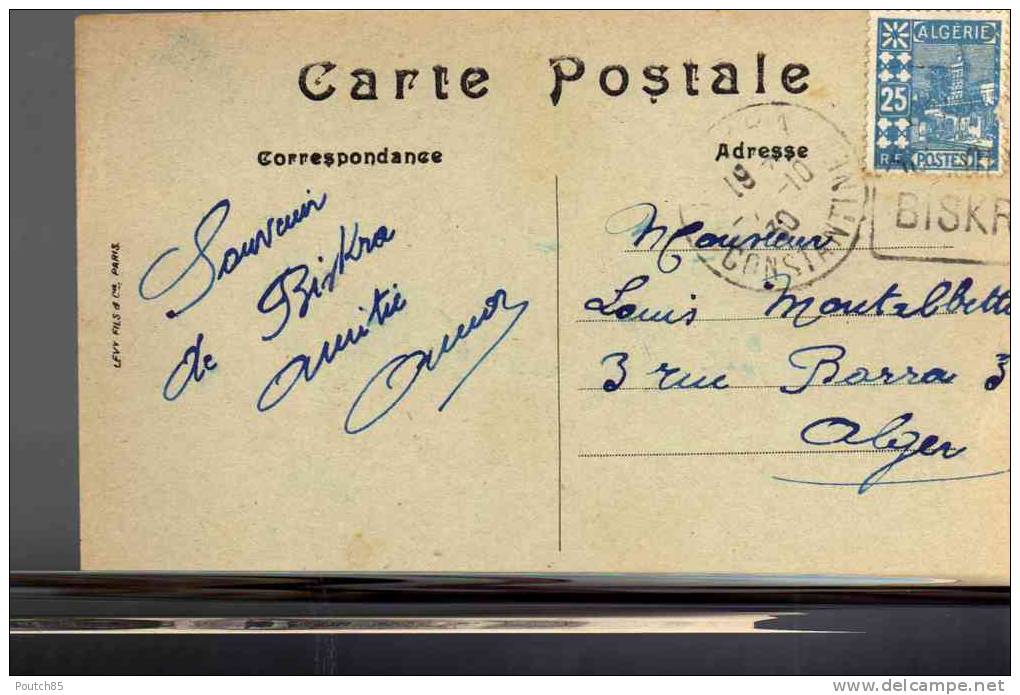 Carte Postale
Correspondance
Adresse
ALGÉRIE
25
RF POSTES
19
-10
30
CONSTANTIN
BISKR
Souvenir
de Biskra
amitié
Monsieur
Louis Montalbetti
3 rue Barra 3
Alger
LEVY FILS & Cie, PARIS.
Poutch85
www.delcampe.net